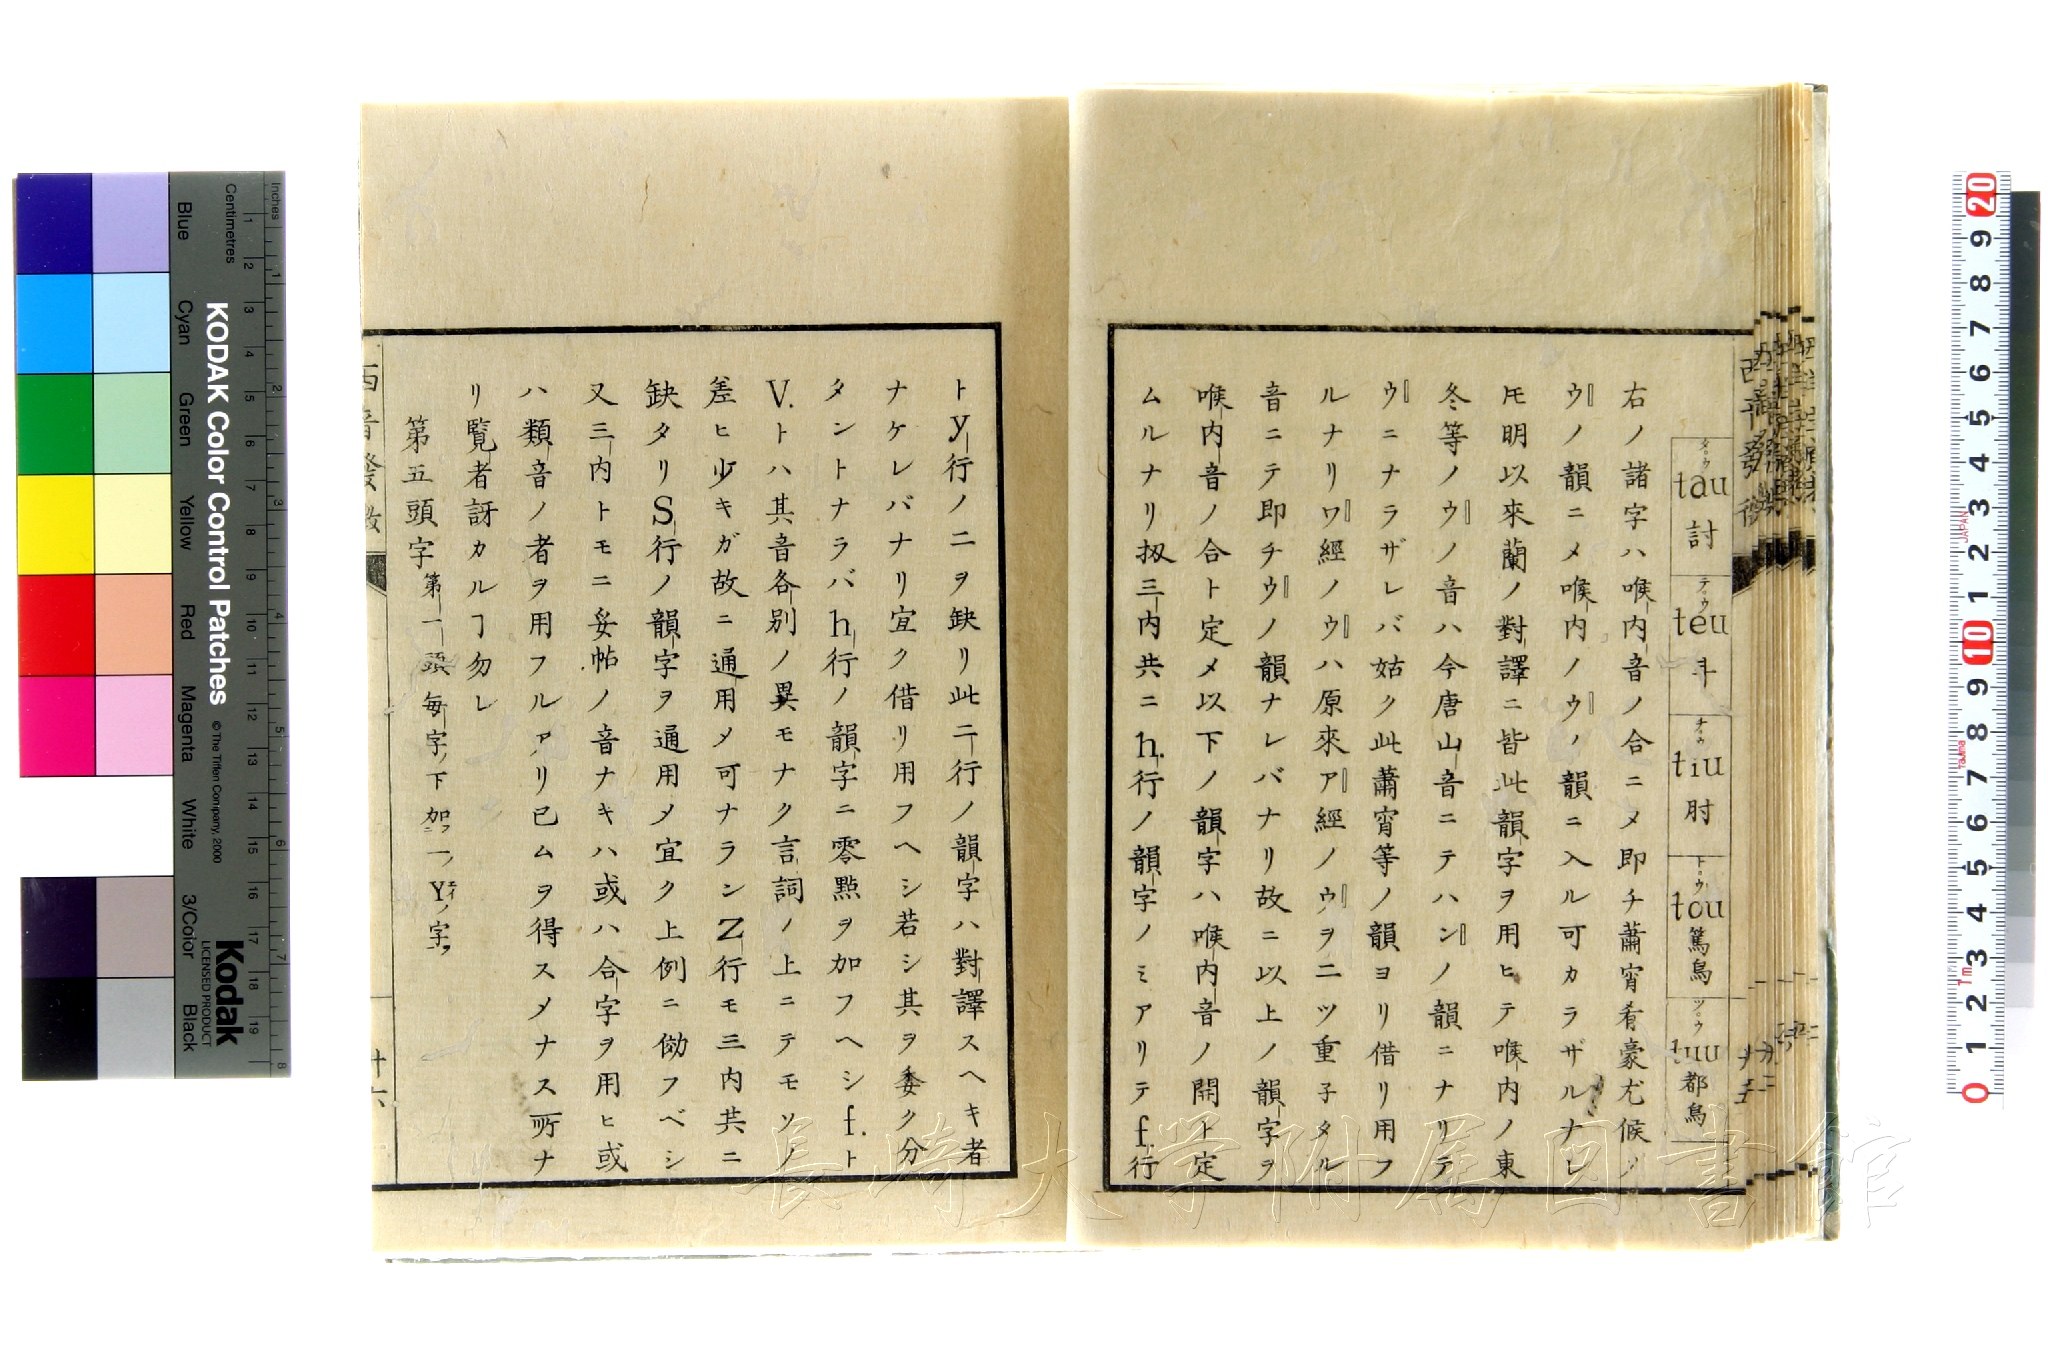 タウ tau 討
テウ teu 斗
チウ tiu 肘
トウ tou 篤烏
ツウ tuu 都烏
右ノ諸字ハ喉内音ノ合ニメ即チ蕭宵肴豪尤候ノ
ウノ韻ニメ喉内ノウノ韻ニ入ル可カラザルナレ
𪜈明以來蘭ノ對譯ニ皆此韻字ヲ用ヒテ喉内ノ東
冬等ノウノ音ハ今唐山音ニテハンノ韻ニナリテ
ウニナラザレバ姑ク此蕭宵等ノ韻ヨリ借リ用フ
ルナリワ經ノウハ原來ア經ノウヲ二ツ重子タル
音ニテ即チウノ韻ナレバナリ故ニ以上ノ韻字ヲ
喉内音ノ合ト定メ以下ノ韻字ハ喉内音ノ開ト定
ムルナリ扨三内共ニh.行ノ韻字ノミアリテf.行
トy行ノ二ヲ缺リ此二行ノ韻字ハ對譯スヘキ者
ナケレバナリ宜ク借リ用フヘシ若シ其ヲ委ク分
タントナラバh行ノ韻字ニ零點ヲ加フヘシf.ト
V.トハ其音各別ノ異モナク言詞ノ上ニテモソノ
差ヒ少キガ故ニ通用メ可ナランZ行モ三内共ニ
缺タリS行ノ韻字ヲ通用メ宜ク上例ニ傚フベシ
又三内トモニ妥帖ノ音ナキハ或ハ合字ヲ用ヒ或
ハ類音ノ者ヲ用フルアリ已ムヲ得スメナス所ナ
リ覽者訝カルヿ勿レ
第五頭字 第一頭毎字ノ下加フ一ノYエイノ字ヲ
西音發微
十六
KODAK Color Control Patches
© The Tiffen Company, 2000
Kodak
LICENSED PRODUCT
Inches
Centimetres
Blue
Cyan
Green
Yellow
Red
Magenta
White
3/Color
Black
長崎大学附属図書館